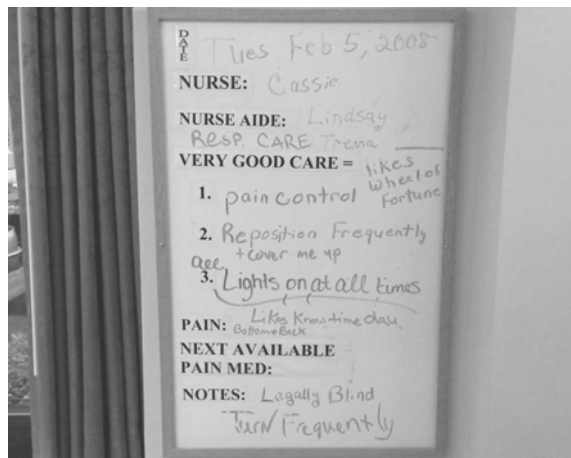 DATE Tues Feb 5, 2008
NURSE: Cassie
NURSE AIDE: Lindsay
RESP. CARE Trema
VERY GOOD CARE = likes
Wheel of
Fortune
1. pain control
2. Reposition Frequently
+ cover me up
all
3. Lights on at all times
Likes Know time day
PAIN: Bottom + Back
NEXT AVAILABLE
PAIN MED:
NOTES: Lagally Blind
Turn Frequently